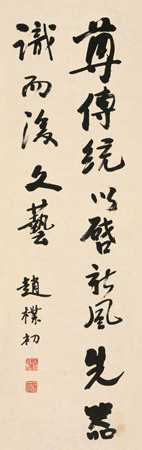 尊傳統以啓新風先器
識而後文藝
趙樸初